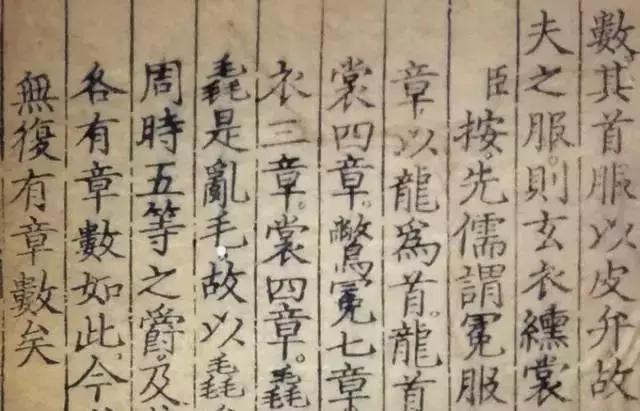 數。其首服以皮弁。故
夫之服。則玄衣纁裳
臣按。先儒謂冕服
章。以龍爲首。龍首
裳四章。鷩冕七章
衣三章。裳四章。毳
毳是亂毛。故以毳
周時五等之爵。及
各有章數如此。今
無復有章數矣